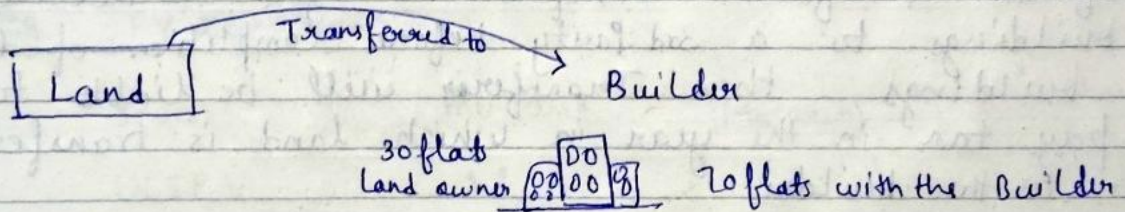 Transferred to
Land
Builder
30 flats
Land owner
70 flats with the Builder